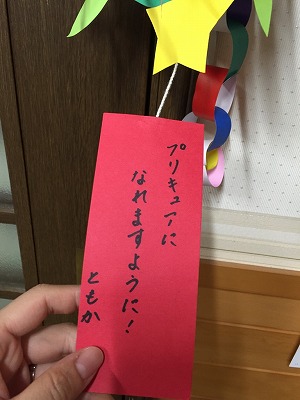 プリキュアに
なれますように!
ともか